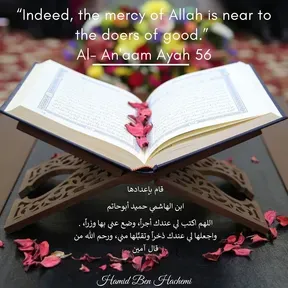 “Indeed, the mercy of Allah is near to
the doers of good.”
Al- An'aam Ayah 56
قام بإعدادها
ابن الهاشمي حميد أبوحاتم
اللهم اكتب لي عندك أجراً، وضع عني بها وزراً، .
واجعلها لي عندك ذخراً وتقبَّلها مني، ورحم الله من
قال آمين
Hamid Ben Hachemi